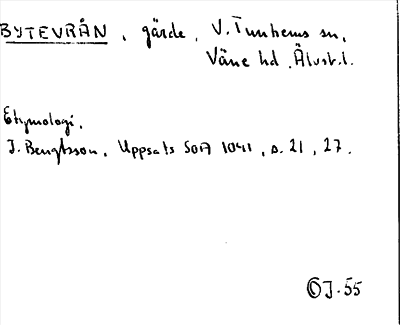 BYTEVRÅN, gärde, V. Tunhems sn,
Väne hd, Älvsb.l.
Etymologi,
J. Bengtsson, Uppsats SOA 1041, s. 21, 27.
OJ-55